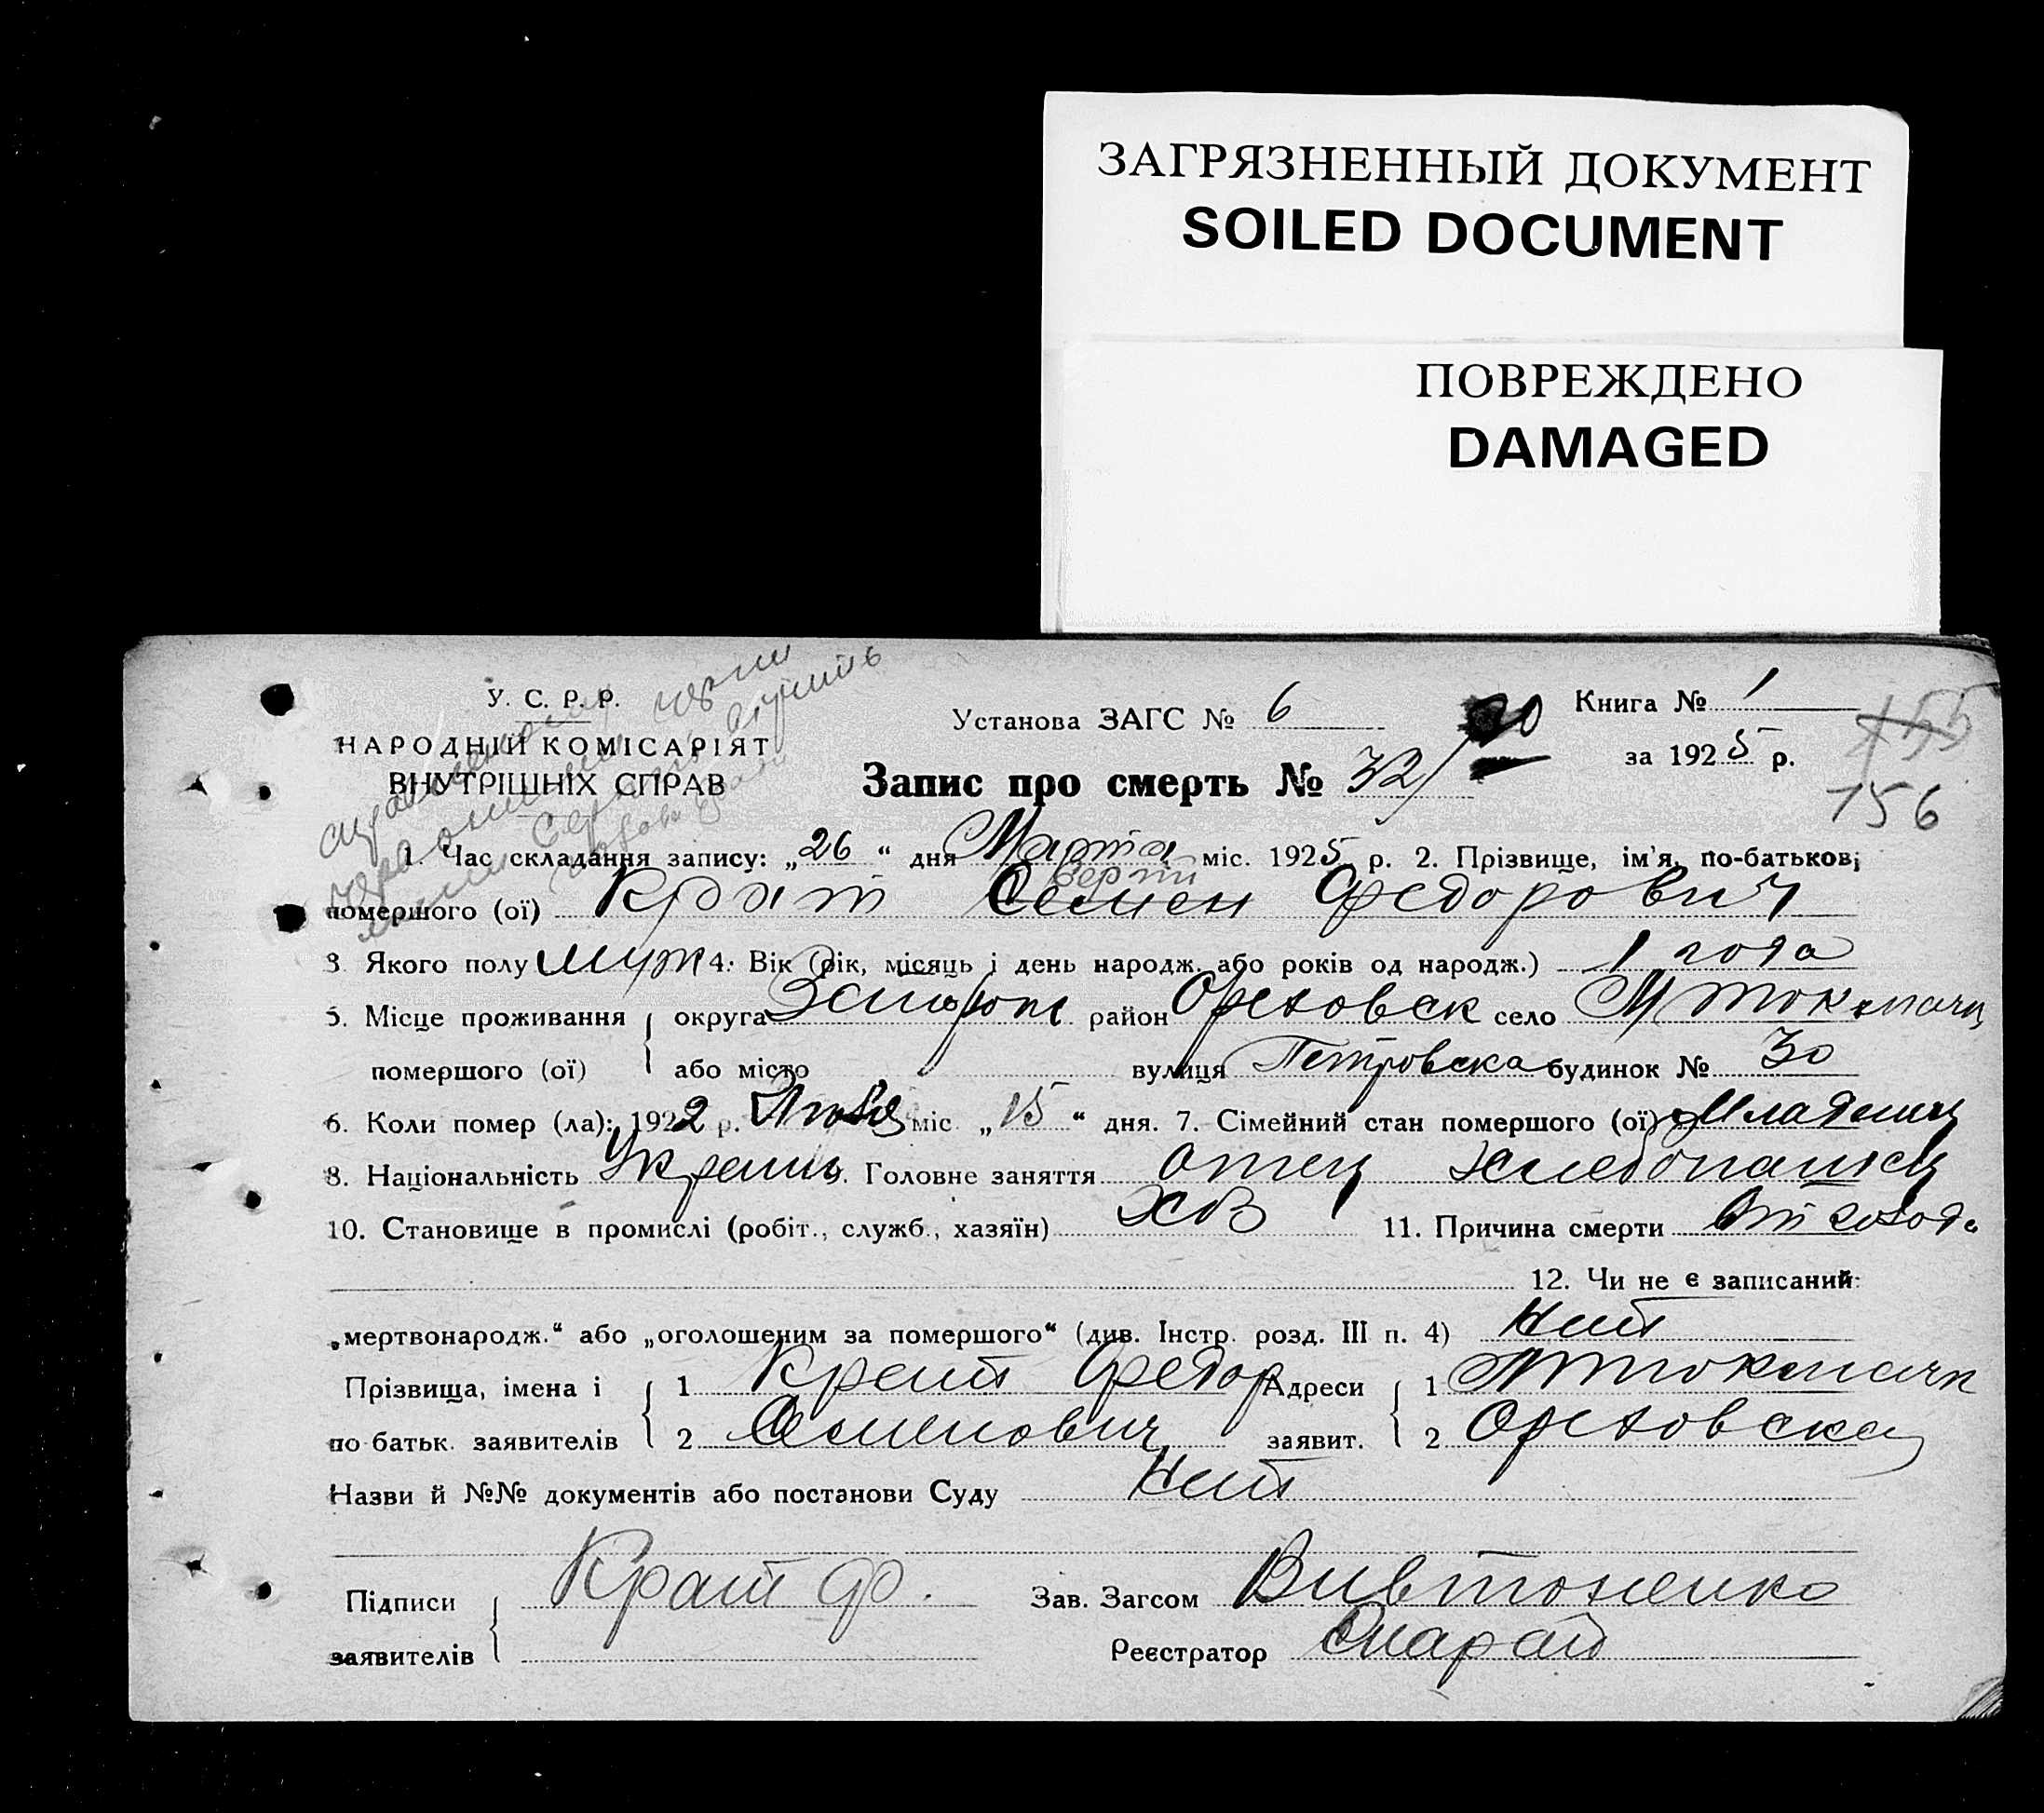 ЗАГРЯЗНЕННЫЙ ДОКУМЕНТ
SOILED DOCUMENT
ПОВРЕЖДЕНО
DAMAGED
У. С. Р. Р.
НАРОДНІЙ КОМІСАРІЯТ
ВНУТРІШНІХ СПРАВ
Установа ЗАГС № 6
Книга № 1
за 1925 р.
155
156
Запис про смерть № 32/
1. Час складання запису: „26“ дня Марта міс. 1925 р. 2. Прізвище, ім'я, по-батькові
помершого (ої) Крат Семен Федорович
3 Якого полу муж 4. Вік (рік, місяць і день народж. або років од народж.) 1 года
5. Місце проживання округа Запорож район Ореховск село М Токмачк
помершого (ої) або місто вулиця Петровска будинок № 30
6. Коли помер (ла): 1922 р. міс. „15“ дня. 7. Сімейний стан помершого (ої) Младенец
8. Національність Украин 9. Головне заняття Отец хлебопашец
10. Становище в промислі (робіт., служб., хазяїн) Хоз 11. Причина смерти От голода
12. Чи не є записаний:
„мертвонародж.“ або „оголошеним за помершого“ (див. Інстр. розд. III п. 4) Нет
Прізвища, імена і 1 Крат Федор Адреси 1 М Токмачк
по батьк. заявителів 2 Семенович заявит. 2 Ореховска
Назви й №№ документів або постанови Суду Нет
Підписи Крат Ф. Зав. Загсом Вивтоненко
заявителів Реєстратор